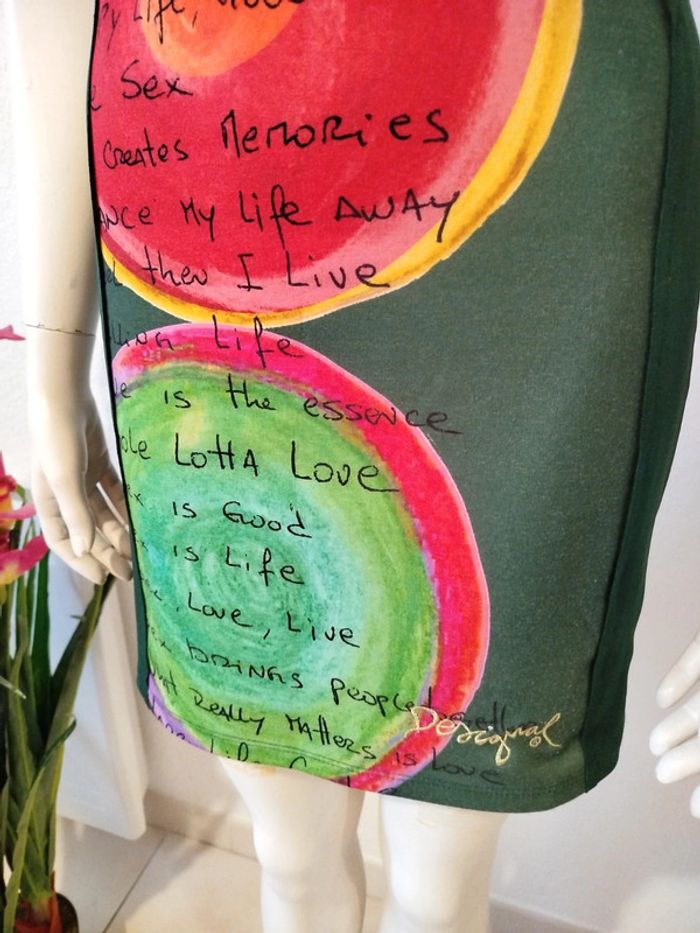 Life,
Sex
Creates Memories
My Life AWAY
then I Live
Life
is the essence
Lotta Love
is Good
is Life
, Love, Live
brings people
Really Matters is Love
Desigual